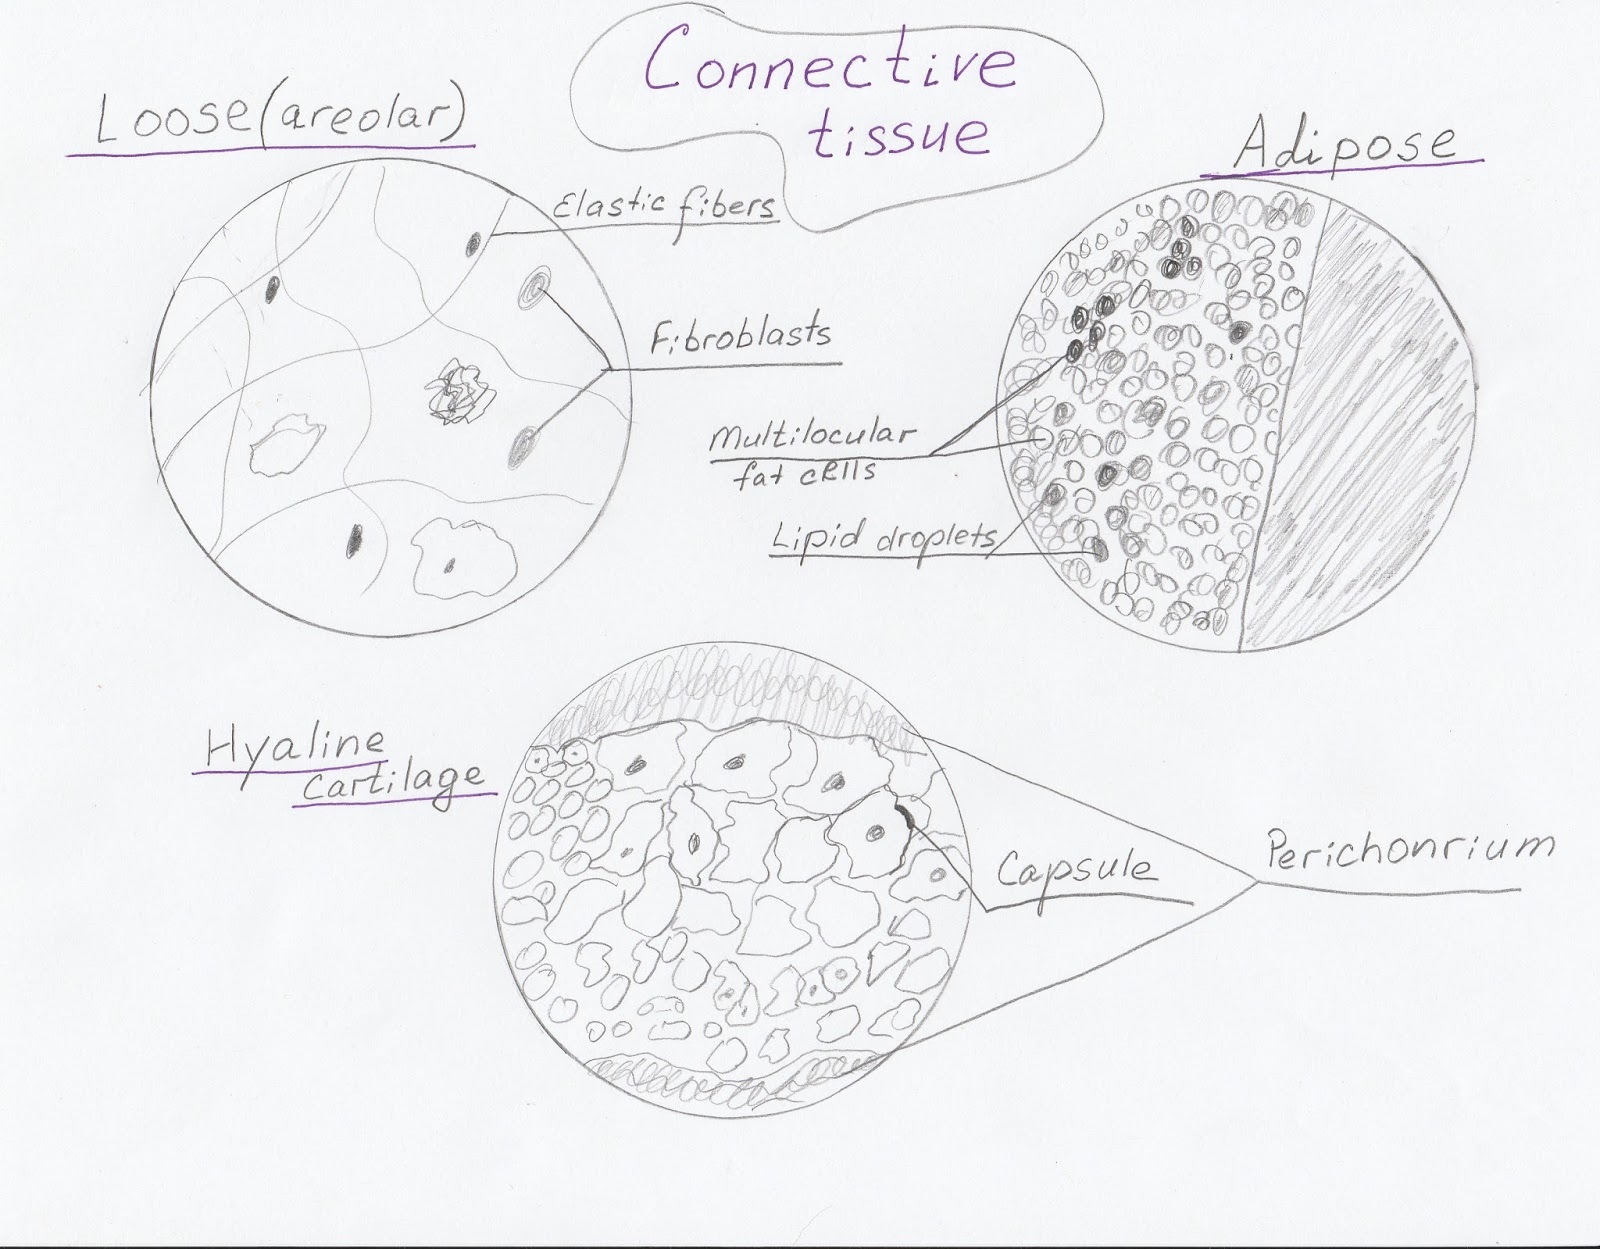 Connective
tissue
Loose (areolar)
Elastic fibers
Fibroblasts
Adipose
Multilocular
fat cells
Lipid droplets
Hyaline
cartilage
Capsule
Perichonrium